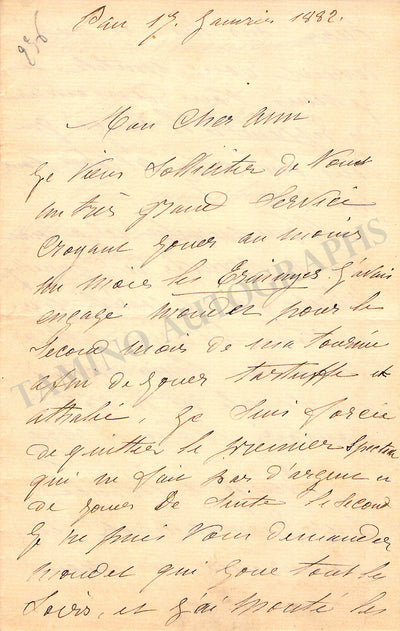 Pau 17 Janvier 1882.
236
Mon Cher Ami
Je Viens Solliciter de Vous
un très grand Service
Croyant jouer au moins
un mois les Erinnyes J'avais
engagé Mondet pour le
Second mois de ma tournée
afin de jouer tartuffe et
athalie, Je Suis forcée
de quitter le premier Spectacle
qui ne fait pas d'argent et
de jouer De Suite le Second
Je ne puis Vous demander
Mondet qui joue tous les
Soirs, et j'ai monté les
TAMINO AUTOGRAPHS